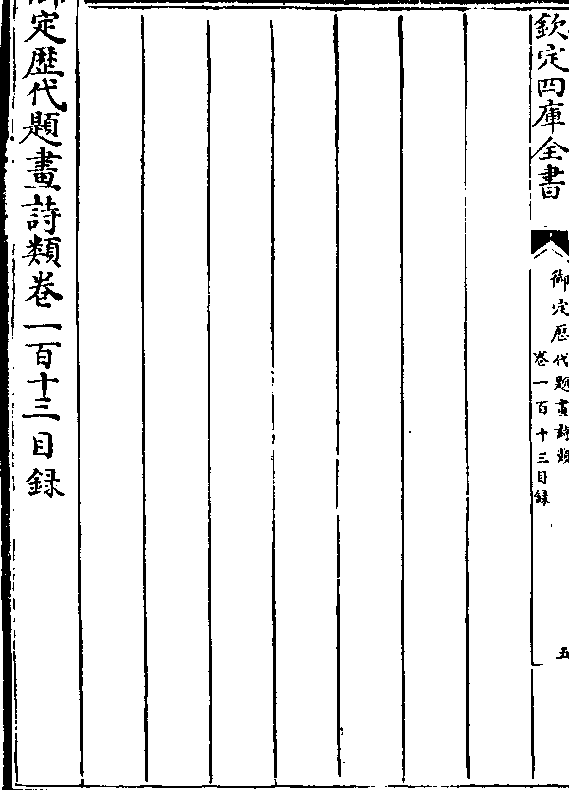 欽定四庫全書
御定歴代題畫詩類
卷一百十三目録
五
御定歴代題畫詩類卷一百十三目録